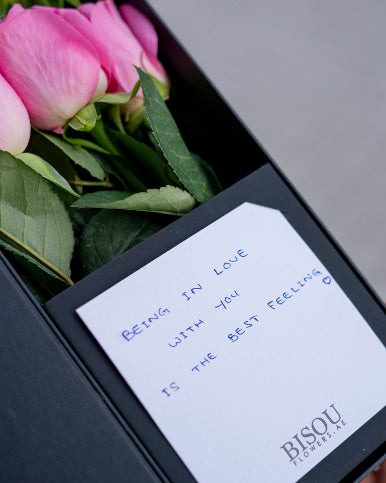 BEING IN LOVE
WITH YOU
IS THE BEST FEELING ♡
BISOU
FLOWERS.AE